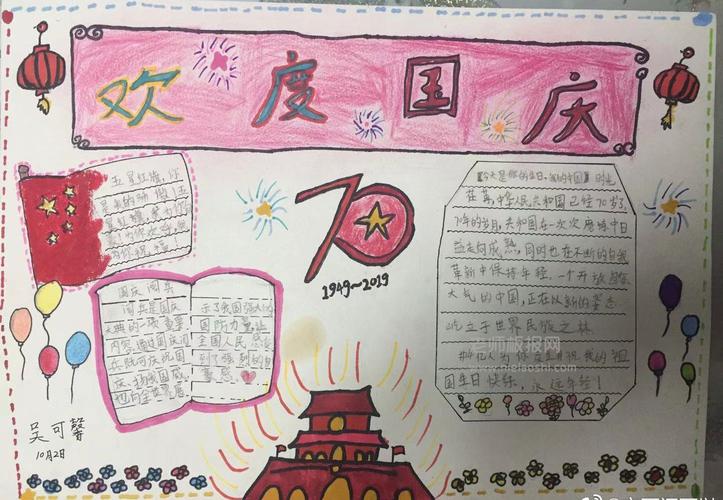 欢度国庆
五星红旗，你
是我的骄傲！五
星红旗，我为你
70
1949~2019
《今天是你的生日，我的中国》 时光
荏苒，中华人民共和国已经70岁了，
70年的岁月，共和国在一次次磨砺中日
益走向成熟，同时也在不断的自我
革新中保持年轻。一个开放自信
大气的中国，正在以新的姿态
屹立于世界民族之林
国生日快乐，永远年轻！
国庆阅兵
阅兵是国庆
大典的一项重要
内容，通过国庆阅
兵既可庆祝国
庆，扬我国威，
示了我国强大的
国防力量，让
全国人民感受
到了强烈的自
豪感。
吴可馨
10月2日
老师板报网
www.dielaoshi.com